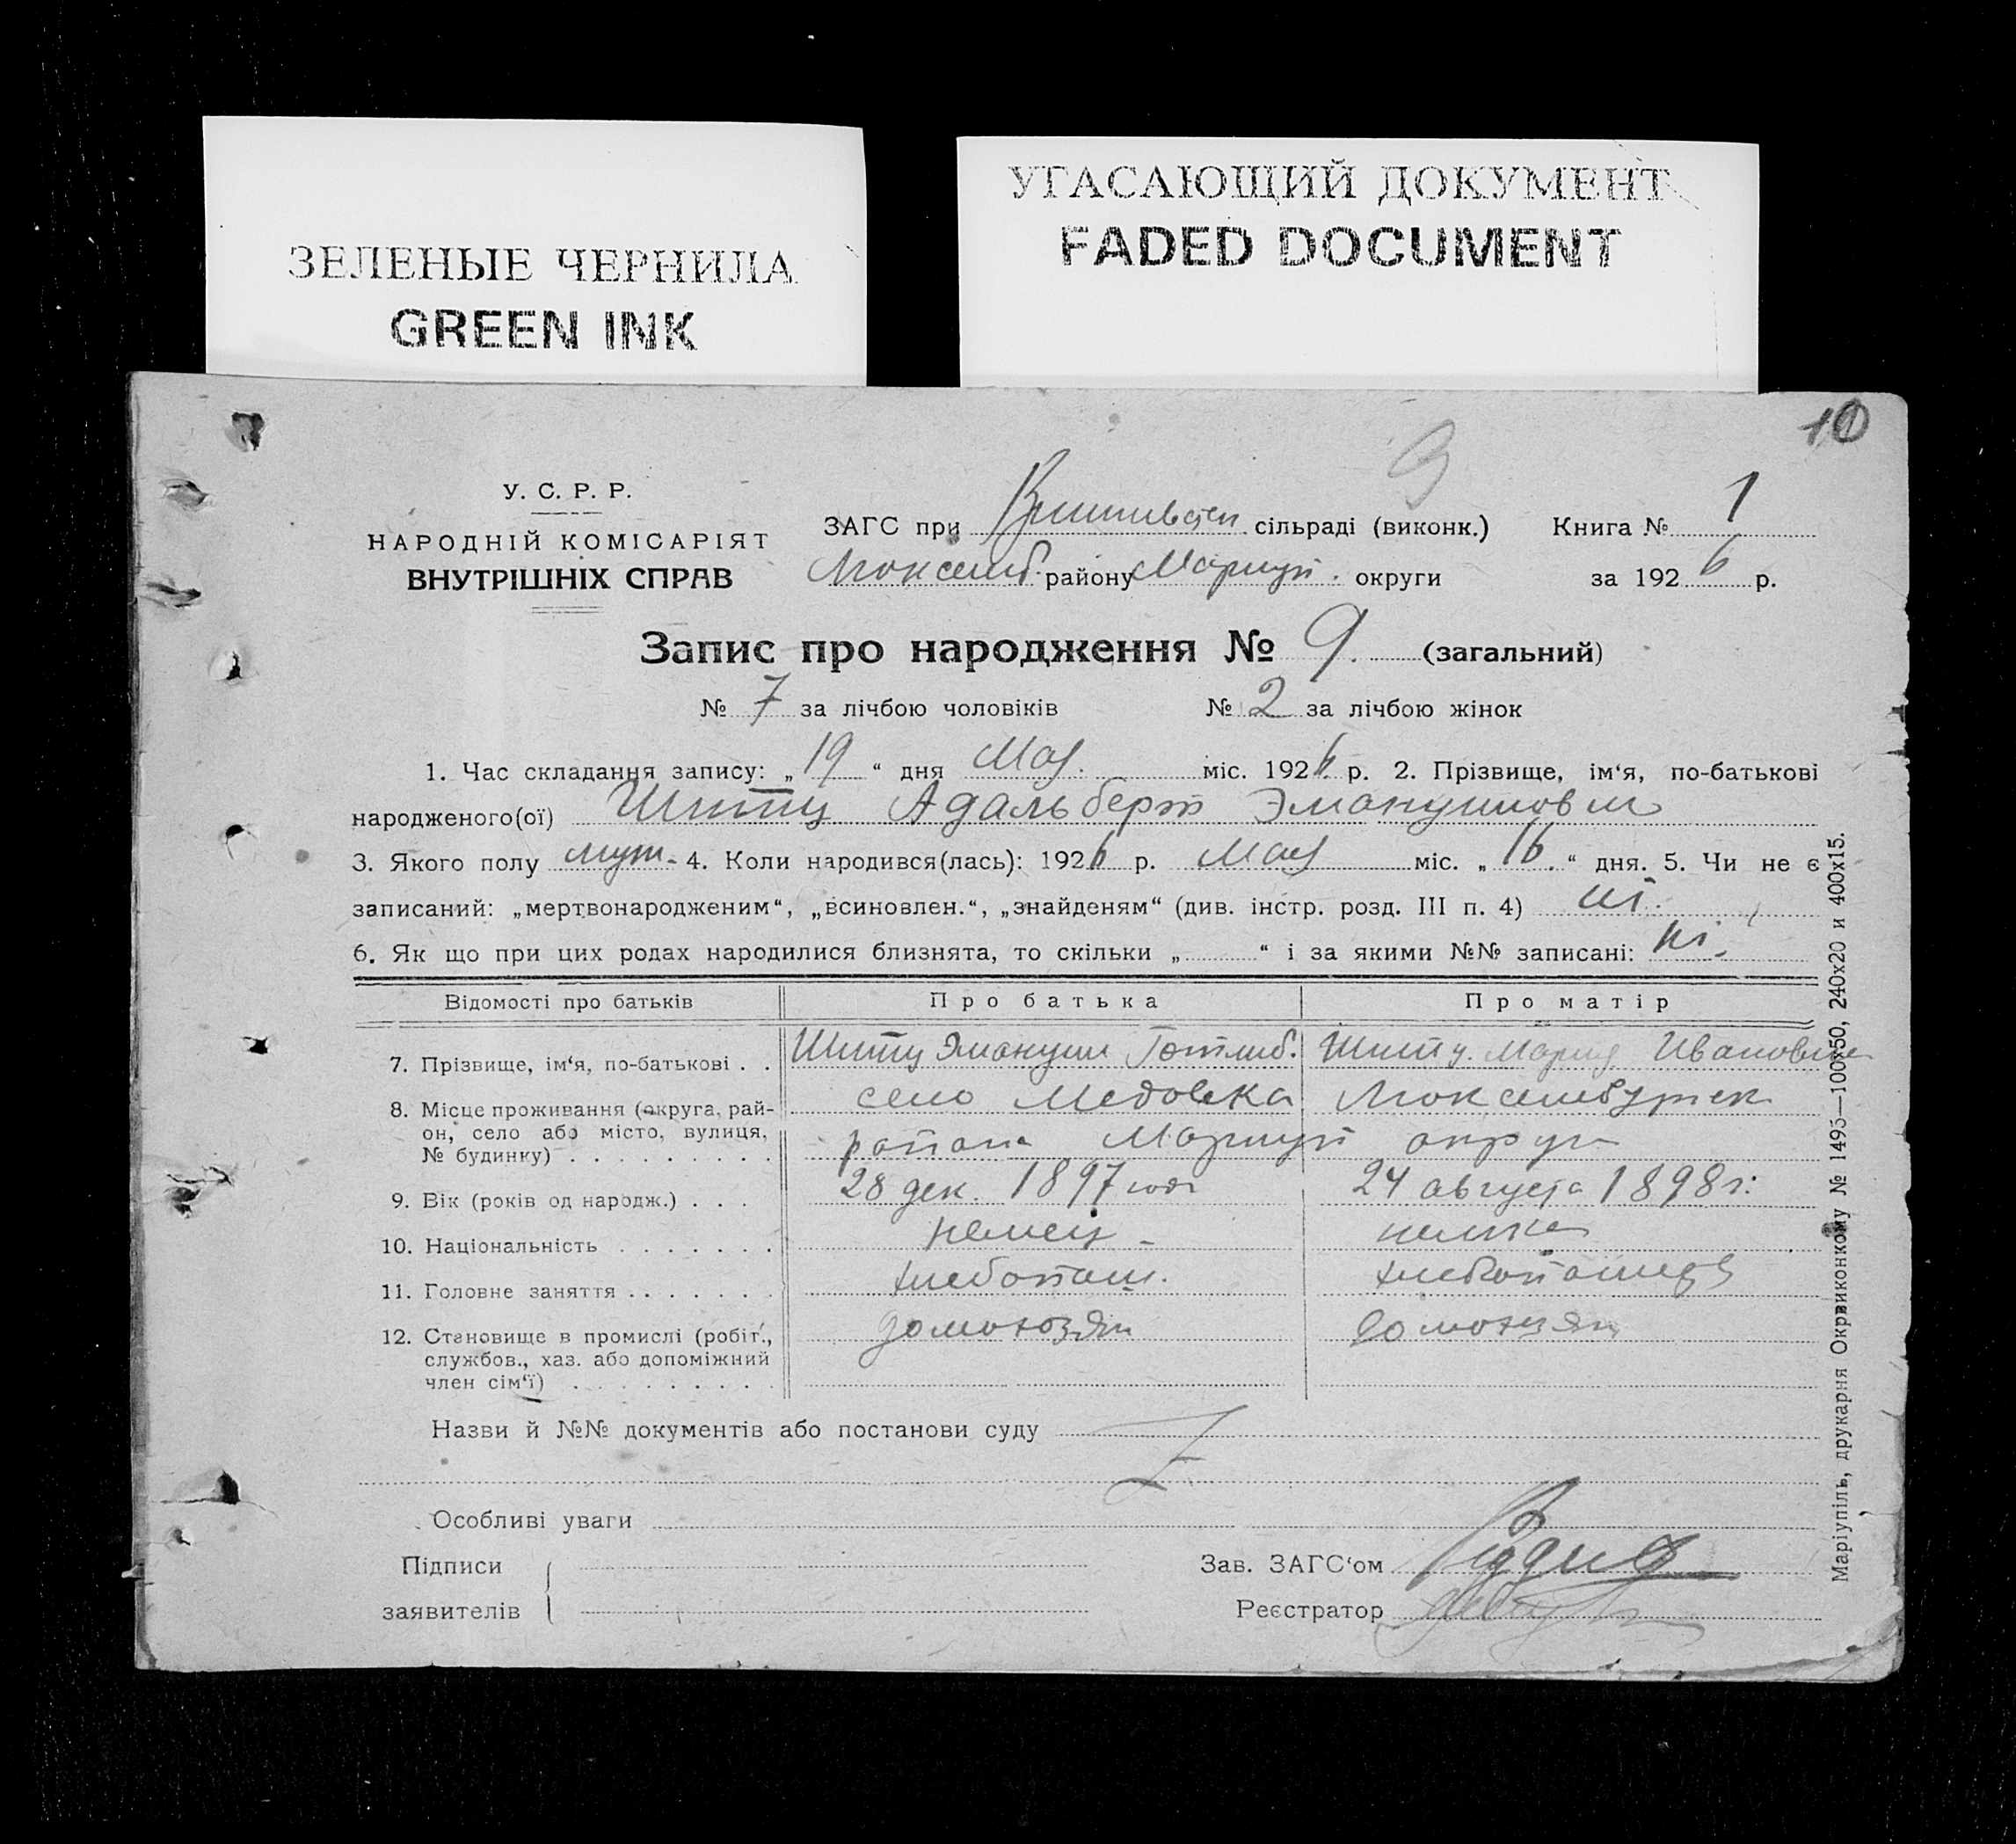 ЗЕЛЕНЫЕ ЧЕРНИЛА
GREEN INK
УГАСАЮЩИЙ ДОКУМЕНТ
FADED DOCUMENT
10
9
У. С. Р. Р.
НАРОДНІЙ КОМІСАРІЯТ
ВНУТРІШНІХ СПРАВ
ЗАГС при сільраді (виконк.) Книга № 1
Люксемб. району Мариуп. округи за 1926 р.
Запис про народження № 9. (загальний)
№ 7 за лічбою чоловіків № 2 за лічбою жінок
1. Час складання запису: „19“ дня Мая. міс. 1926 р. 2. Прізвище, ім‘я, по-батькові
народженого(ої) Шитц Адальберт
3. Якого полу муж. 4. Коли народився(лась): 1926 р. Мая міс. „16.“ дня. 5. Чи не є
записаний: „мертвонародженим“, „всиновлен.“, „знайденям“ (див. інстр. розд. III п. 4) ні.
6. Як що при цих родах народилися близнята, то скільки „ “ і за якими №№ записані: ні.
Відомості про батьків Про батька Про матір
7. Прізвище, ім‘я, по-батькові . . Шитц Эмануил Готлиб. Шитц. Мария Ивановна
8. Місце проживання (округа, рай- село Медовка Люксембургск
он, село або місто, вулиця, района Мариуп округи
№ будинку) . . . . . . . . .
9. Вік (років од народж.) . . . 28 дек. 1897 года 24 августа 1898 г.
10. Національність . . . . . . . немец - немка
11. Головне заняття . . . . . . . хлебопаш.
12. Становище в промислі (робіт., домохозяин
службов., хаз. або допоміжний
член сім‘ї) . . . . . . . . .
Назви й №№ документів або постанови суду
Особливі уваги
Підписи
заявителів
Зав. ЗАГС‘ом
Реєстратор
Маріупіль, друкарня Окрвиконкому № 1495—100х50, 240х20 и 400х15.